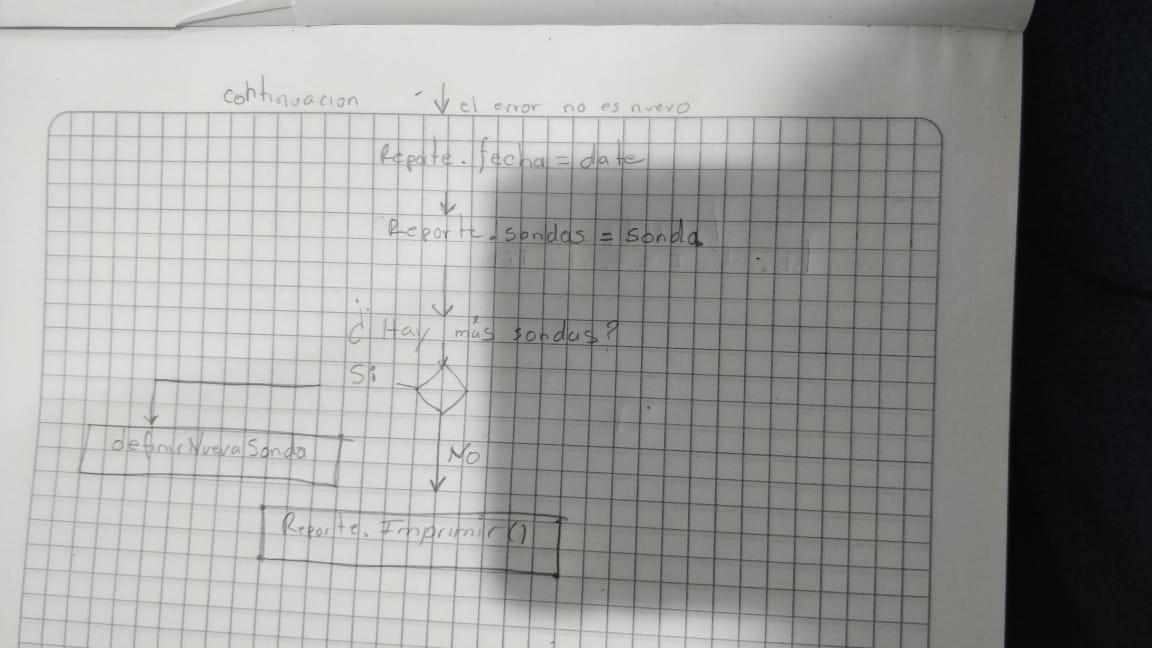 continuacion
el error no es nuevo
Repote.fecha = date
Reporte.sondas = sonda
¿Hay más sondas?
Si
definirNuevaSonda
NO
Reporte.Imprimir()